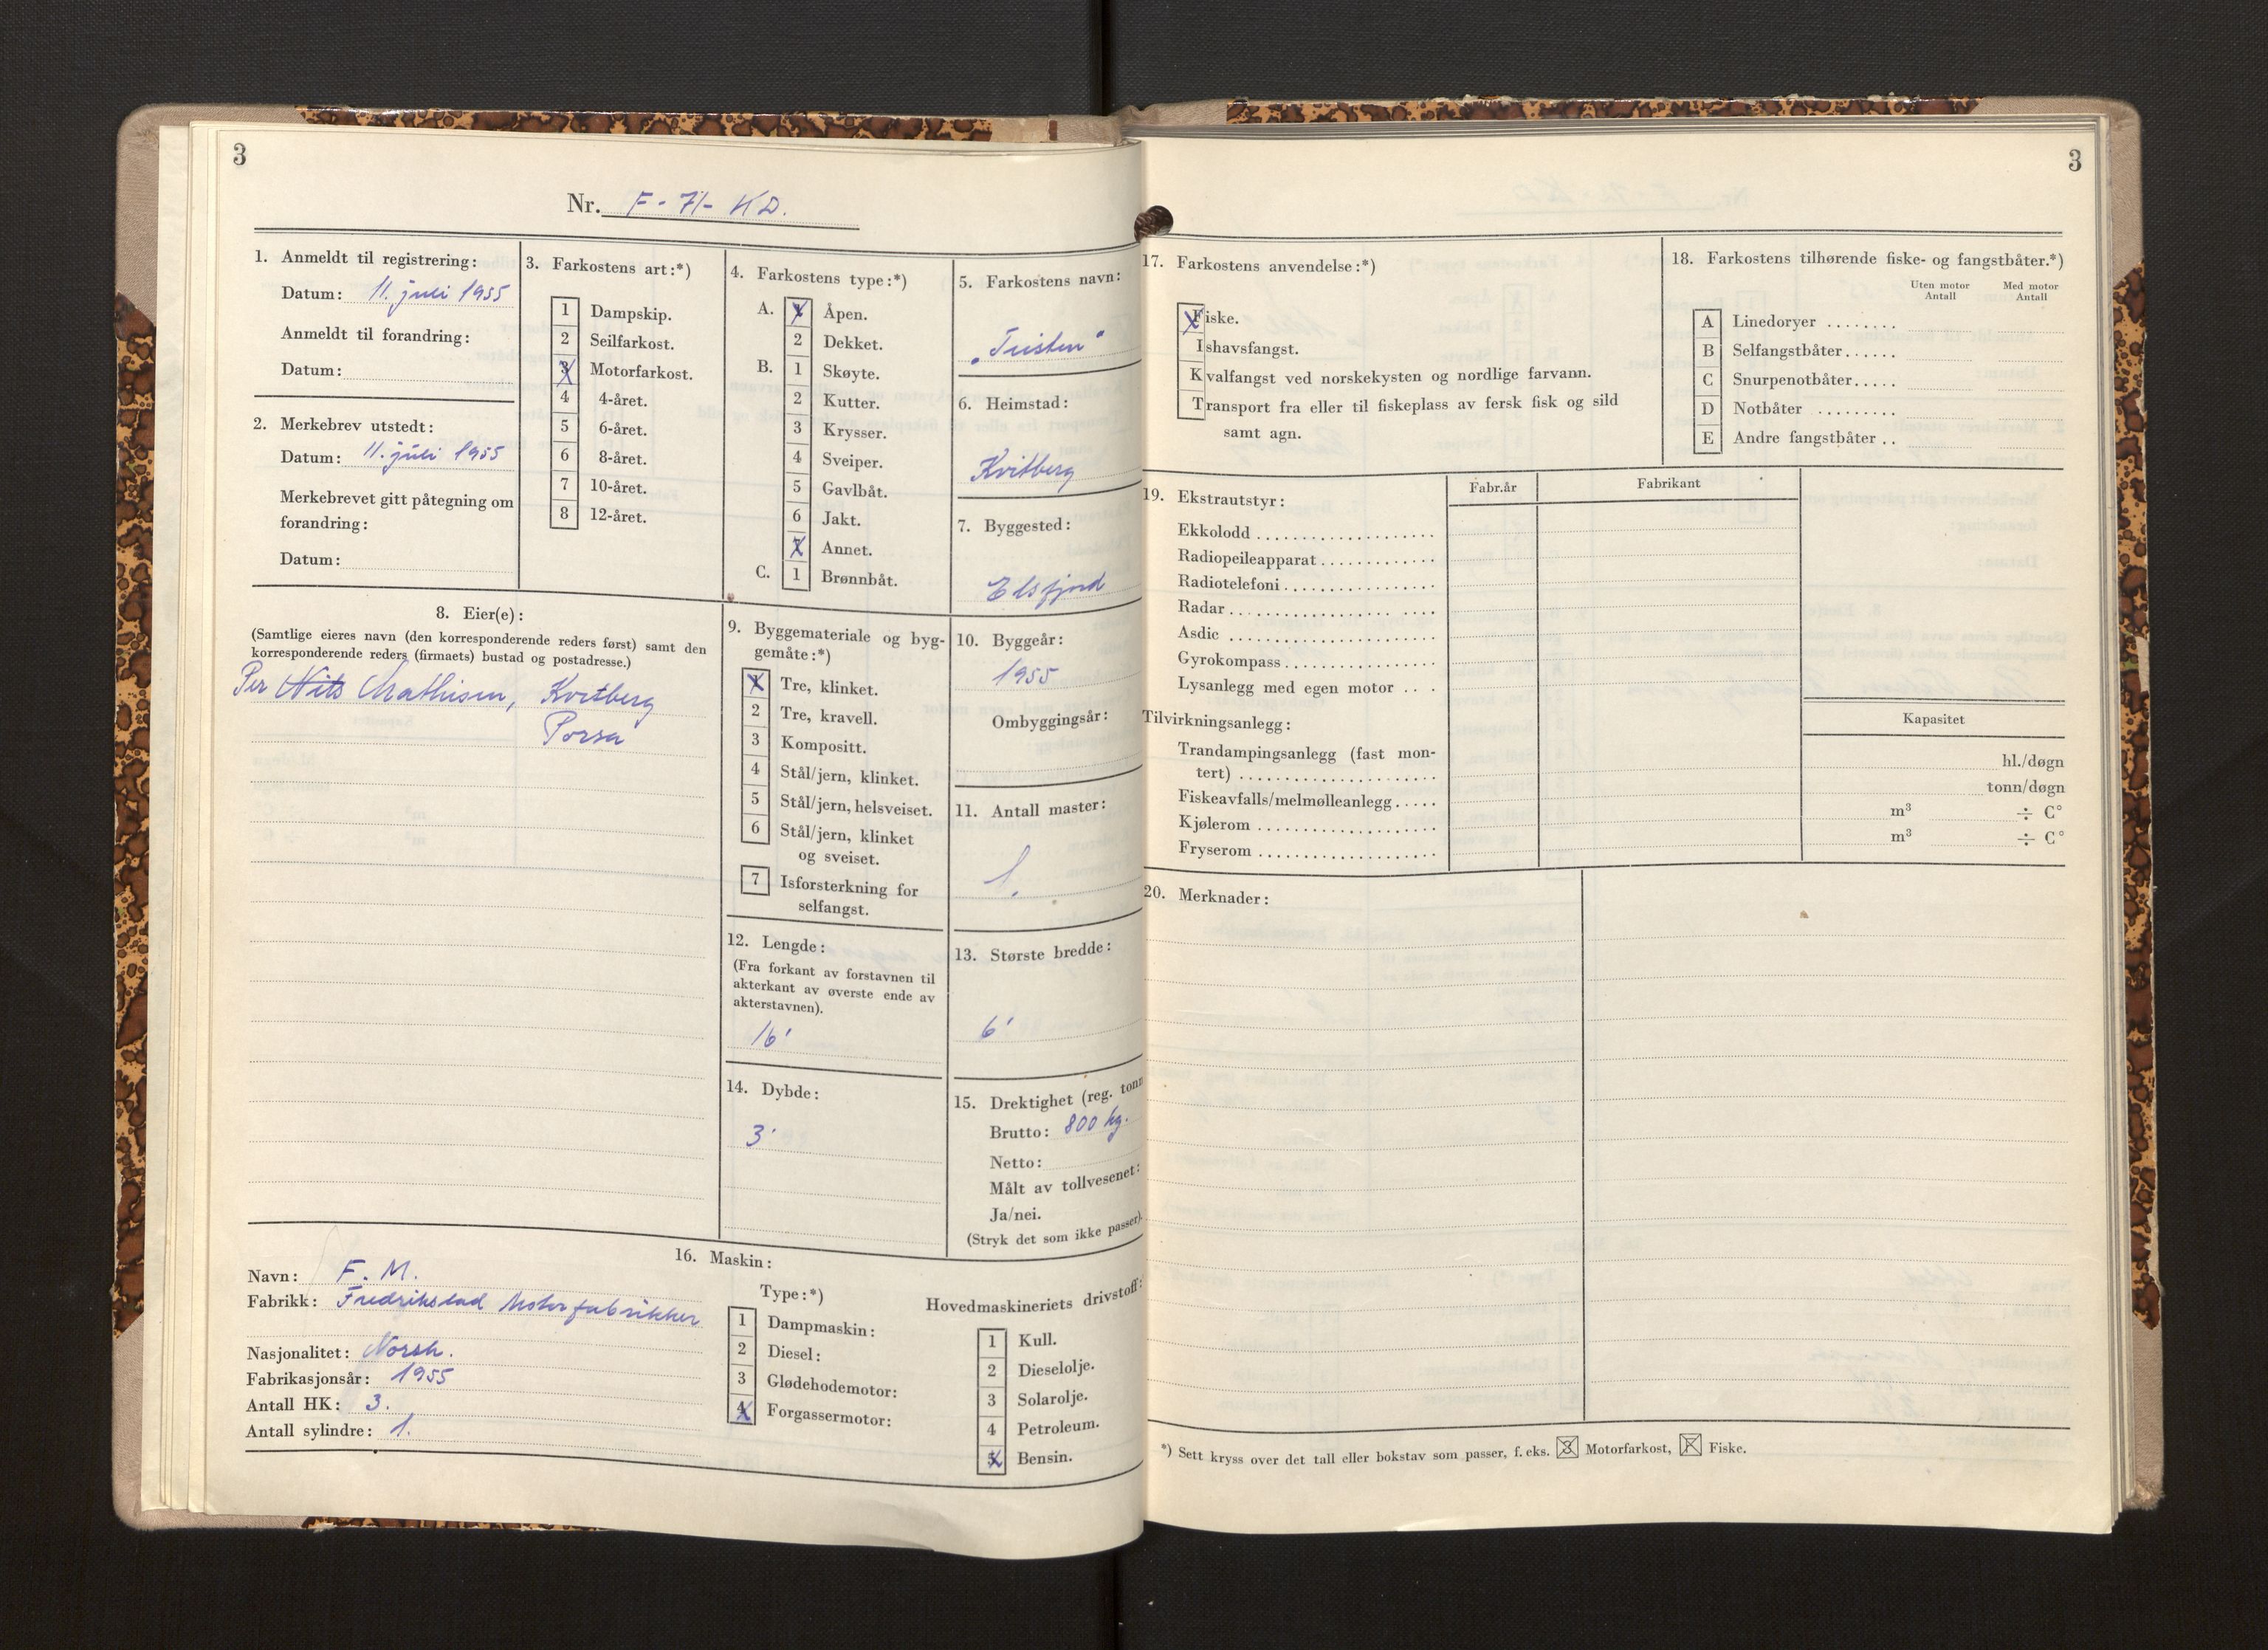 3
Nr. F-71-KD.
1. Anmeldt til registrering:
Datum: 11. juli 1955
Anmeldt til forandring:
Datum:
2. Merkebrev utstedt:
Datum: 11. juli 1955
Merkebrevet gitt påtegning om
forandring:
Datum:
3. Farkostens art:*)
1 Dampskip.
2 Seilfarkost.
3 Motorfarkost.
4 4-året.
5 6-året.
6 8-året.
7 10-året.
8 12-året.
4. Farkostens type:*)
A. 1 Åpen.
2 Dekket.
B. 1 Skøyte.
2 Kutter.
3 Krysser.
4 Sveiper.
5 Gavlbåt.
6 Jakt.
7 Annet.
C. 1 Brønnbåt.
5. Farkostens navn:
"Teisten"
6. Heimstad:
Kvitberg
7. Byggested:
Elsfjord
8. Eier(e):
(Samtlige eieres navn (den korresponderende reders først) samt den
korresponderende reders (firmaets) bustad og postadresse.)
Per Nils Mathisen, Kvitberg
Porsa
9. Byggemateriale og byg-
gemåte:*)
1 Tre, klinket.
2 Tre, kravell.
3 Kompositt.
4 Stål/jern, klinket.
5 Stål/jern, helsveiset.
6 Stål/jern, klinket
og sveiset.
7 Isforsterkning for
selfangst.
10. Byggeår:
1955
Ombyggingsår:
11. Antall master:
1.
12. Lengde:
(Fra forkant av forstavnen til
akterkant av øverste ende av
akterstavnen).
16'
13. Største bredde:
6'
14. Dybde:
3'
15. Drektighet (reg. tonn
Brutto: 800 kg.
Netto:
Målt av tollvesenet:
Ja/nei.
(Stryk det som ikke passer).
16. Maskin:
Navn: F. M.
Fabrikk: Fredrikstad Motorfabrikker
Nasjonalitet: Norsk.
Fabrikasjonsår: 1955
Antall HK: 3.
Antall sylindre: 1.
Type:*)
1 Dampmaskin:
2 Diesel:
3 Glødehodemotor:
4 Forgassermotor:
Hovedmaskineriets drivstoff:
1 Kull.
2 Dieselolje.
3 Solarolje.
4 Petroleum.
5 Bensin.
3
17. Farkostens anvendelse:*)
Fiske.
Ishavsfangst.
Kvalfangst ved norskekysten og nordlige farvann.
Transport fra eller til fiskeplass av fersk fisk og sild
samt agn.
18. Farkostens tilhørende fiske- og fangstbåter.*)
Uten motor Med motor
Antall Antall
A Linedoryer ........
B Selfangstbåter......
C Snurpenotbåter.....
D Notbåter .........
E Andre fangstbåter ..
19. Ekstrautstyr:
Fabr.år Fabrikant
Ekkolodd ....................
Radiopeileapparat.............
Radiotelefoni.................
Radar ........................
Asdic ........................
Gyrokompass.................
Lysanlegg med egen motor ...
Tilvirkningsanlegg:
Kapasitet
Trandampingsanlegg (fast mon-
tert) ...................... hl./døgn
Fiskeavfalls/melmølleanlegg..... tonn/døgn
Kjølerom .................... m³ ÷ C°
Fryserom .................... m³ ÷ C°
20. Merknader:
*) Sett kryss over det tall eller bokstav som passer, f. eks. 3 Motorfarkost, F Fiske.